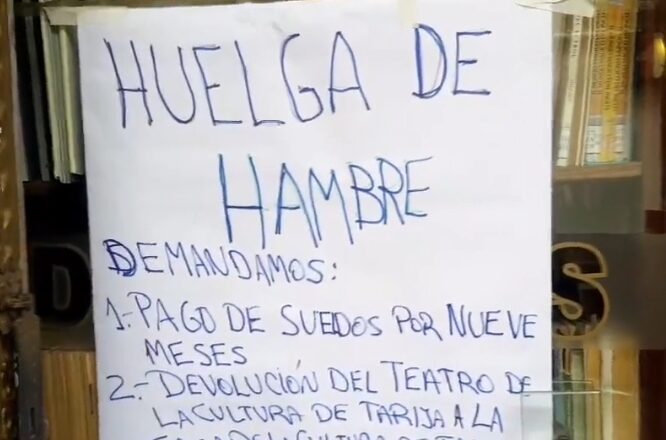 HUELGA DE
HAMBRE
DEMANDAMOS:
1.- PAGO DE SUELDOS POR NUEVE
MESES
2.- DEVOLUCIÓN DEL TEATRO DE
LA CULTURA DE TARIJA A LA
CASA DE LA CULTURA